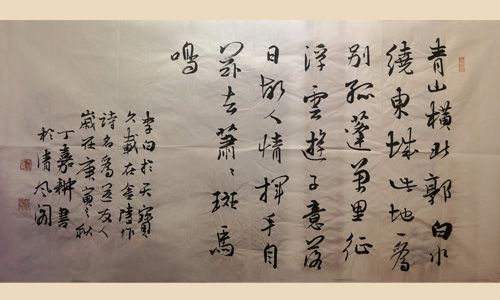 青山橫北郭白水
繞東城此地一為
別孤蓬萬里征
浮雲遊子意落
日故人情揮手自
茲去蕭々斑馬
鳴
李白於天寶
載在金陵作
詩名為送友人
歲在庚寅之秋
丁嘉耕書
於清風閣